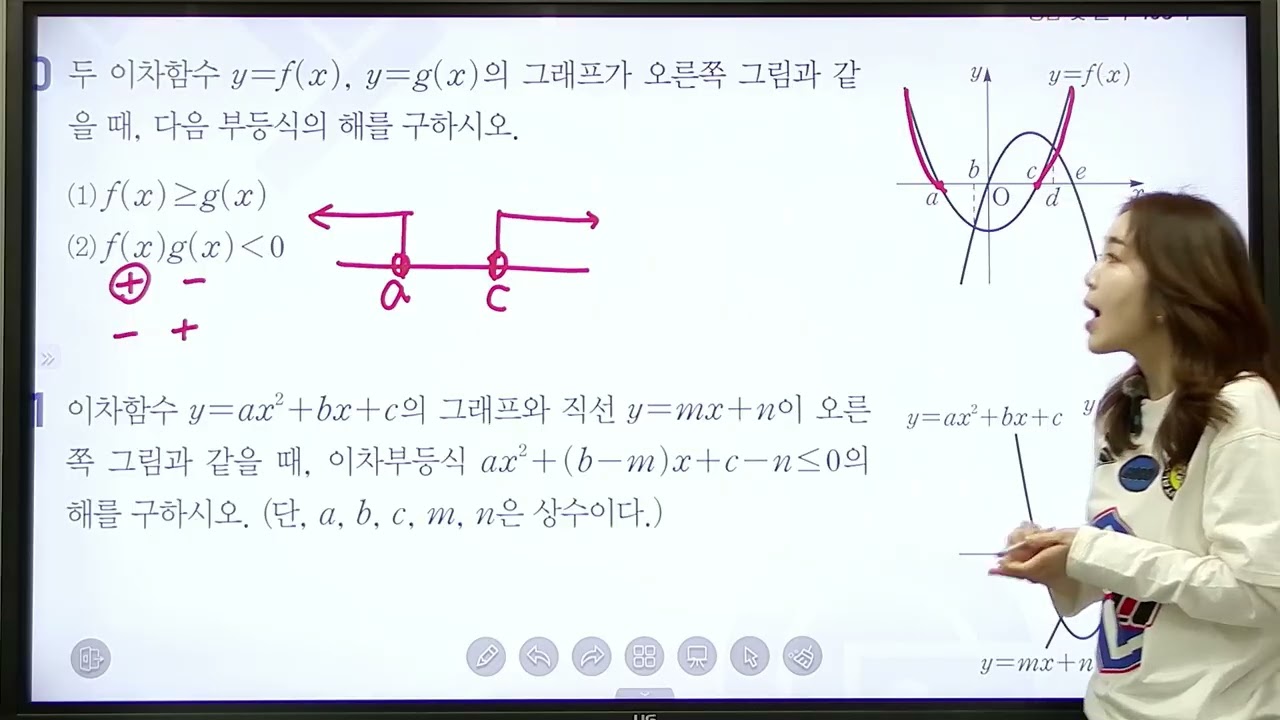 두 이차함수 y=f(x), y=g(x)의 그래프가 오른쪽 그림과 같
을 때, 다음 부등식의 해를 구하시오.
(1) f(x)≥g(x)
(2) f(x)g(x)<0
⊕ -
- +
a c
y y=f(x)
b c e
a O d
이차함수 y=ax²+bx+c의 그래프와 직선 y=mx+n이 오른
쪽 그림과 같을 때, 이차부등식 ax²+(b-m)x+c-n≤0의
해를 구하시오. (단, a, b, c, m, n은 상수이다.)
y=ax²+bx+c y
y=mx+n